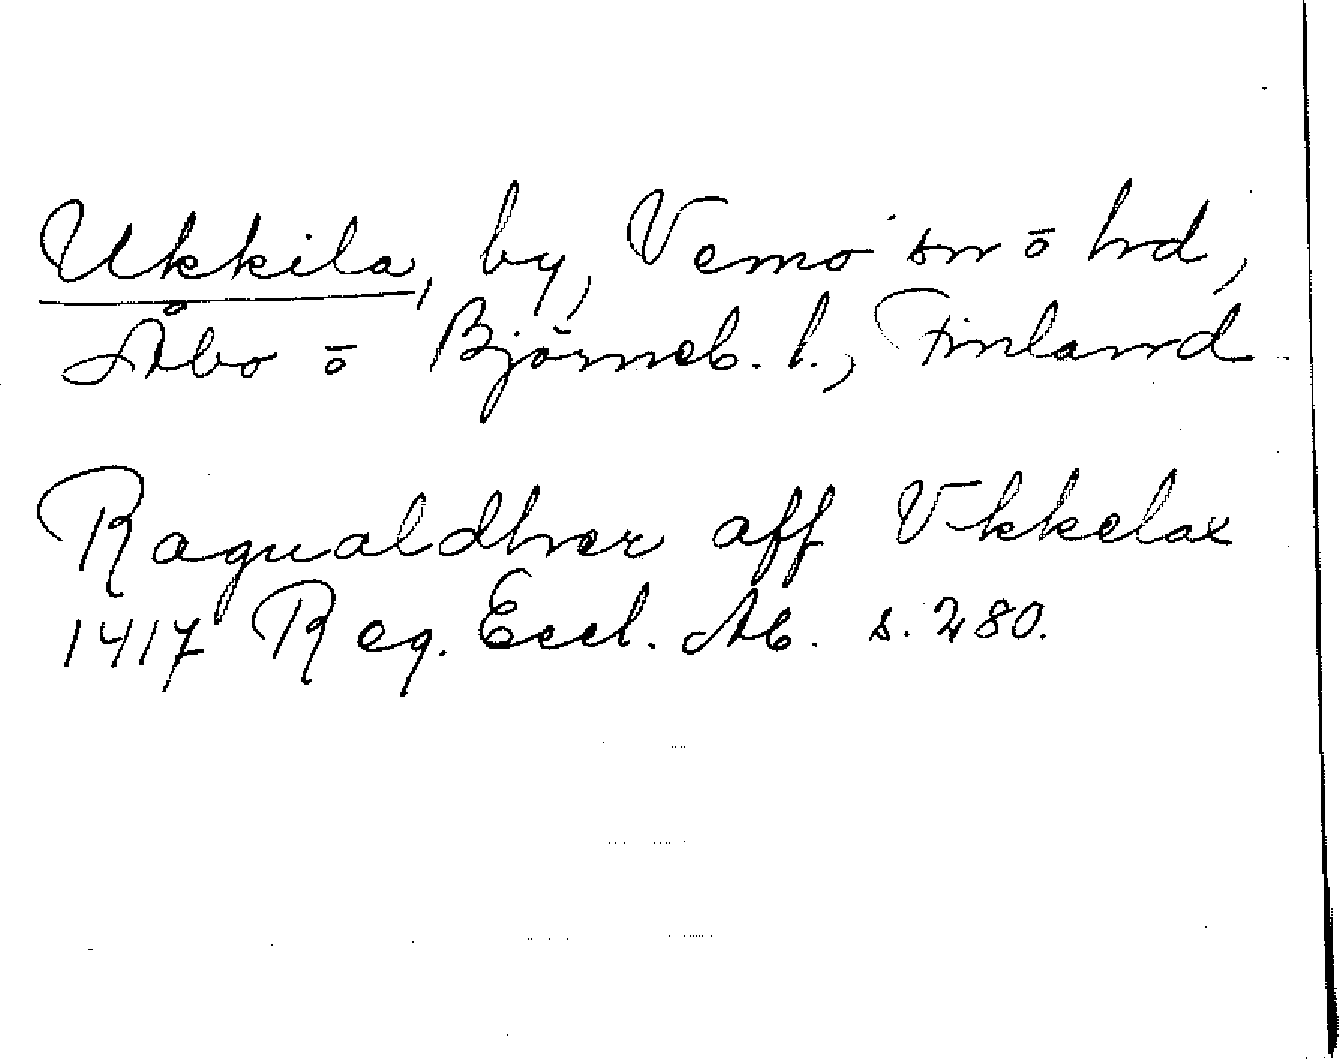 Ukkila, by, Vemo sn o hd,
Åbo o Björneb. l., Finland.
Ragualdher aff Vkkelax
1417 Reg. Eccl. Ab. s. 280.